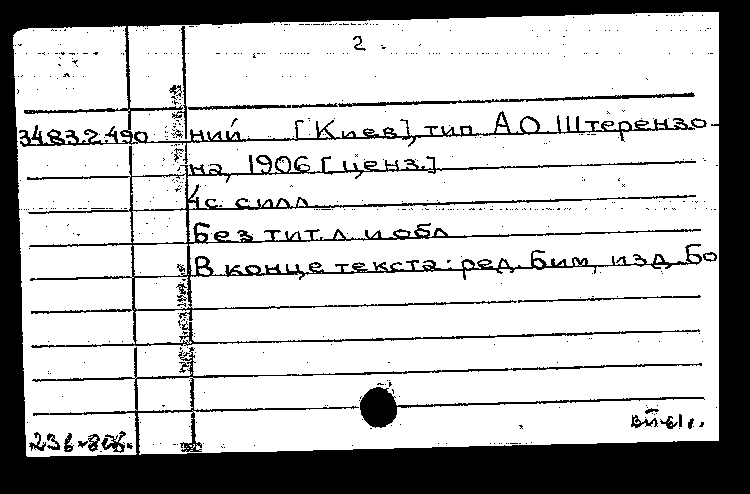 2
3483.2.490 ний [Киев], тип А.О Штерензо-
на, 1906 [ценз.]
4с силл
Без тит. л и обл
В конце текста: ред. Бим, изд. Бо